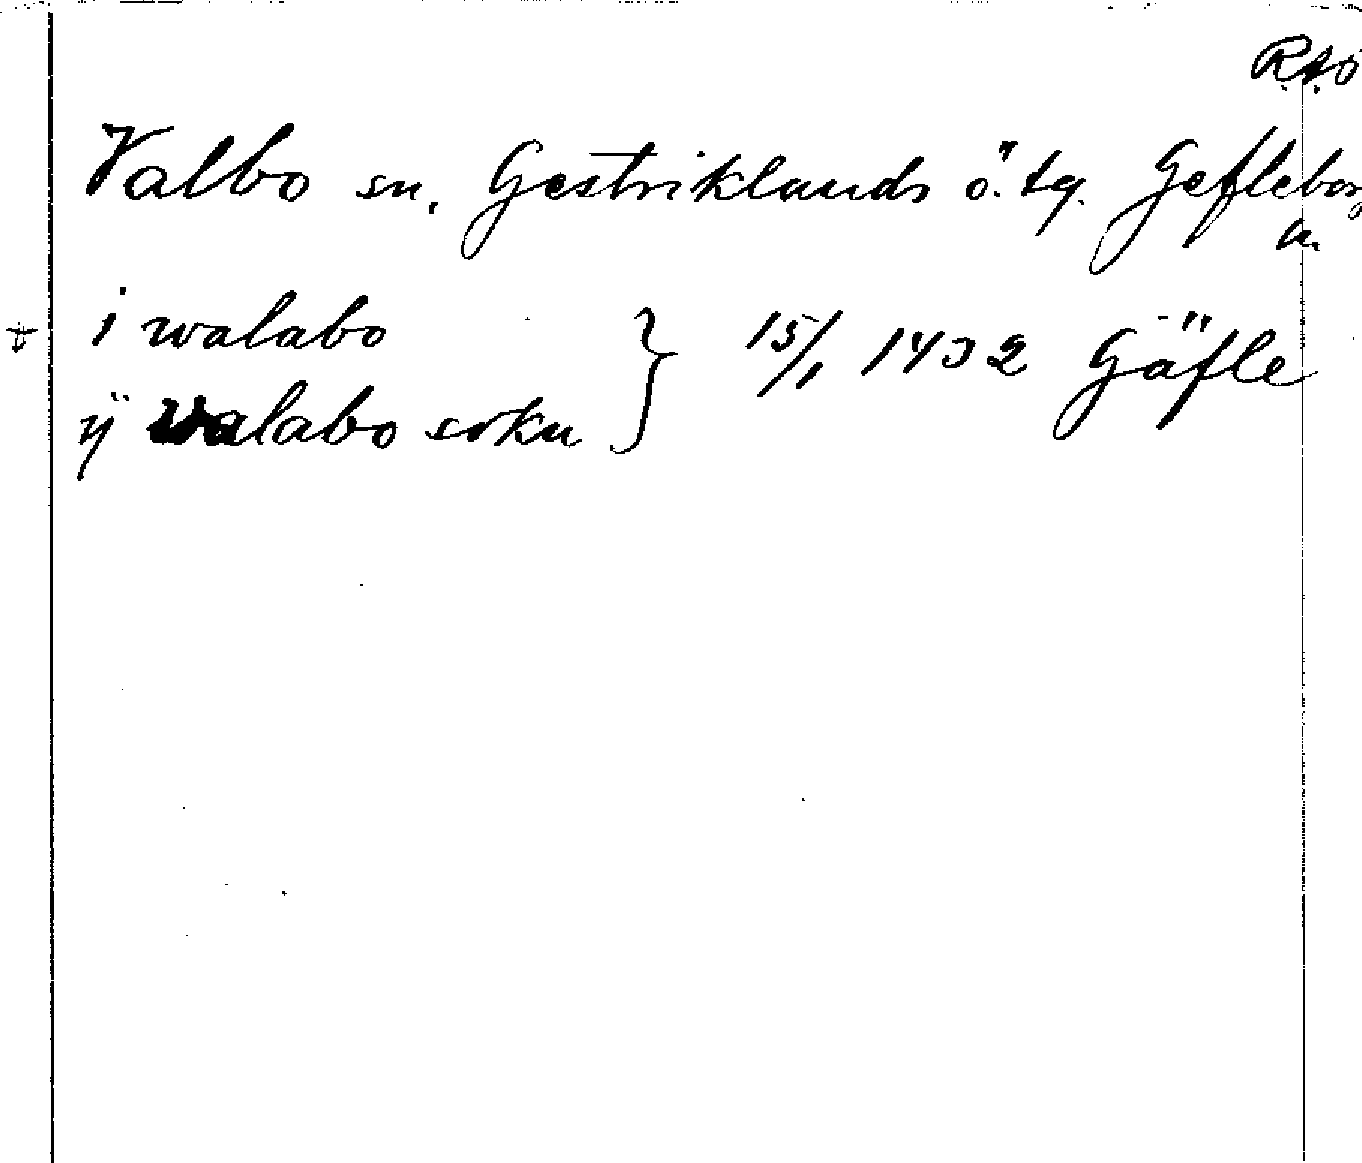 RAÖ
Valbo sn, Gestriklands ö. tg. Gefleborg
i walabo
ÿ walabo sokn
15/1 1432 Gäfle